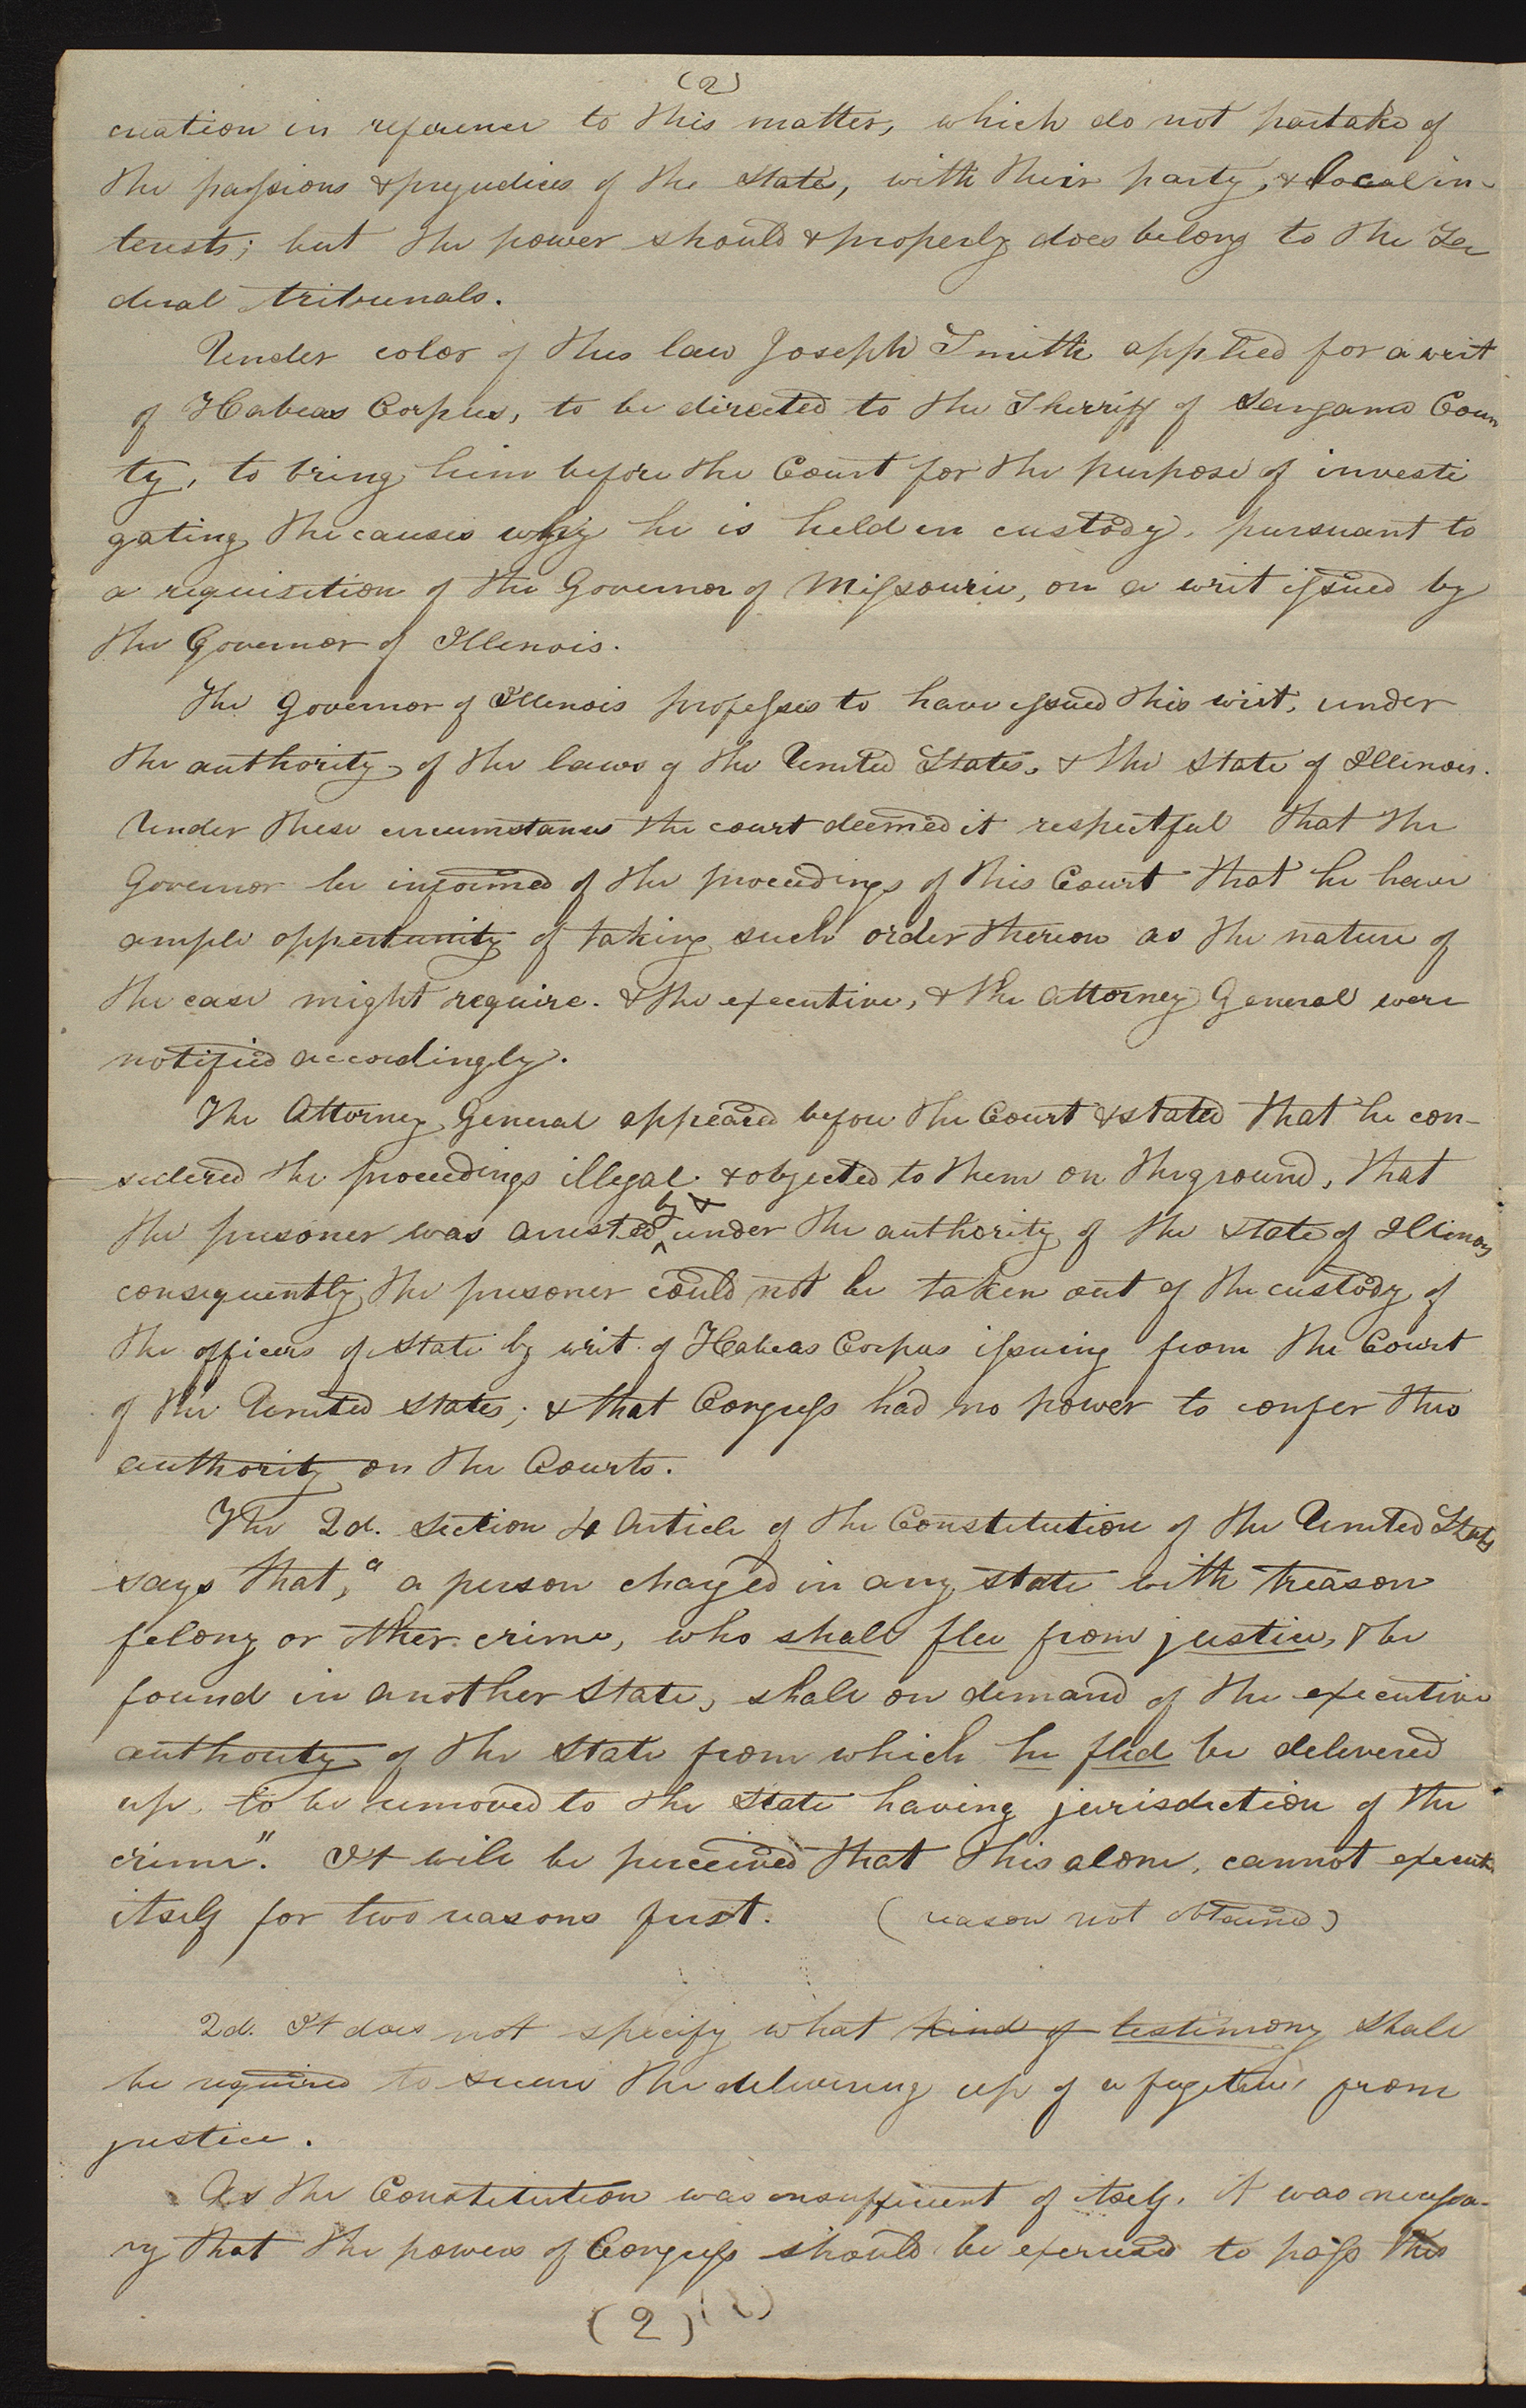 (2)
cration in reference to this matter, which do not partake of
the passions & prejudices of the state, with their party, & local in-
terests; but the power should & properly does belong to the Fe
deral tribunals.
Under color of this law Joseph Smith applied for a writ
of Habeas Corpus, to be directed to the Sherriff of Sangamo Coun
ty, to bring him before the Court for the purpose of investi
gating the causes why he is held in custody, pursuant to
a requisition of the Governor of Missourie, on a writ issued by
the Governor of Illinois.
The Governor of Illinois professes to have issued this writ, under
the authority of the laws of the United States, & the State of Illinois.
Under these circumstances the court deemed it respectful that the
Governor be informed of the proceedings of this Court that he have
ample oppertunity of taking such order thereon as the nature of
the case might require. & the executive, & the Attorney General were
notified accordingly.
The Attorney General appeared before the Court & stated that he con-
sidered the proceedings illegal & objected to them on the ground, that
the prisoner was arrested by & under the authority of the state of Illinois
consequently the prisoner could not be taken out of the custody of
the officers of state by writ of Habeas Corpus issuing from the Court
of the United States; & that Congress had no power to confer this
authority on the Courts.
The 2d. Section 4 Article of the Constitution of the United States
says that, "a person charged in any state with treason
felony or other crime, who shall flee from justice, & be
found in another State, shall on demand of the executive
authority of the state from which he fled be delivered
up, to be removed to the State having jurisdiction of the
crime". It will be perceived that this alone, cannot execute
itself for two reasons first. (reason not obtained)
2d. It does not specify what kind of testimony shall
be required to secure the delivering up of a fugitive from
justice.
As the Constitution was insufficient of itself. it was necessa-
ry that the powers of Congress should be exercised to pass this
(2)